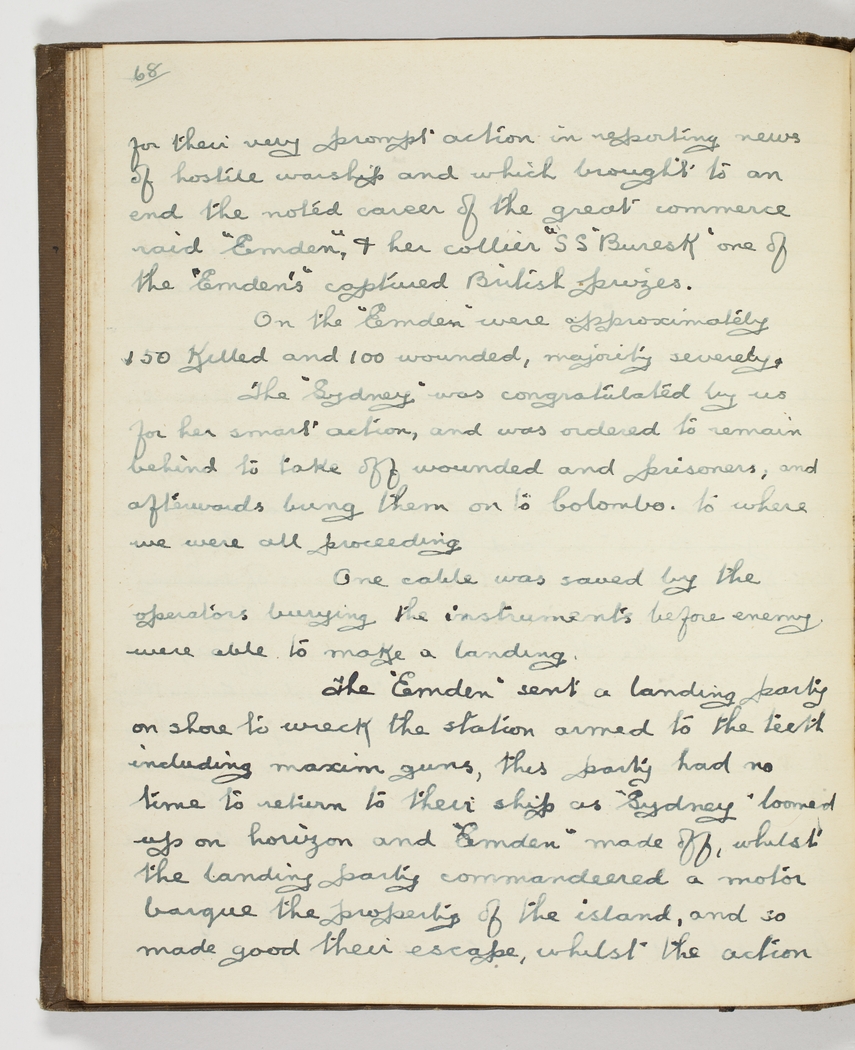 68
for their very prompt action in reporting news
of hostile warship and which brought to an
end the noted career of the great commerce
raid "Emden", & her collier "SS Buresk" one of
the "Emden's" captured British prizes.
On the "Emden" were approximately
150 Killed and 100 wounded, majority severely.
The "Sydney" was congratulated by us
for her smart action, and was ordered to remain
behind to take off wounded and prisoners, and
afterwards bring them on to Colombo. to where
we were all proceeding
One cable was saved by the
operators burying the instruments before enemy
were able to make a landing.
The "Emden" sent a landing party
on shore to wreck the station armed to the teeth
including maxim guns, this party had no
time to return to their ship as "Sydney" loomed
up on horizon and "Emden" made off, whilst
the landing party commandeered a motor
barque the property of the island, and so
made good their escape, whilst the action